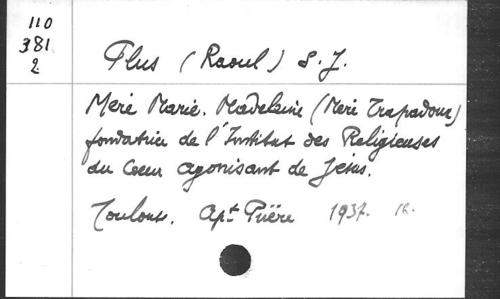 110
381
2
Plus (Raoul) S. J.
Mère Marie. Madeleine (Mère Trapadoux)
fondatrice de l'Institut des Religieuses
du Coeur agonisant de Jésus.
Toulouse. Apt Prière 1937. 16.